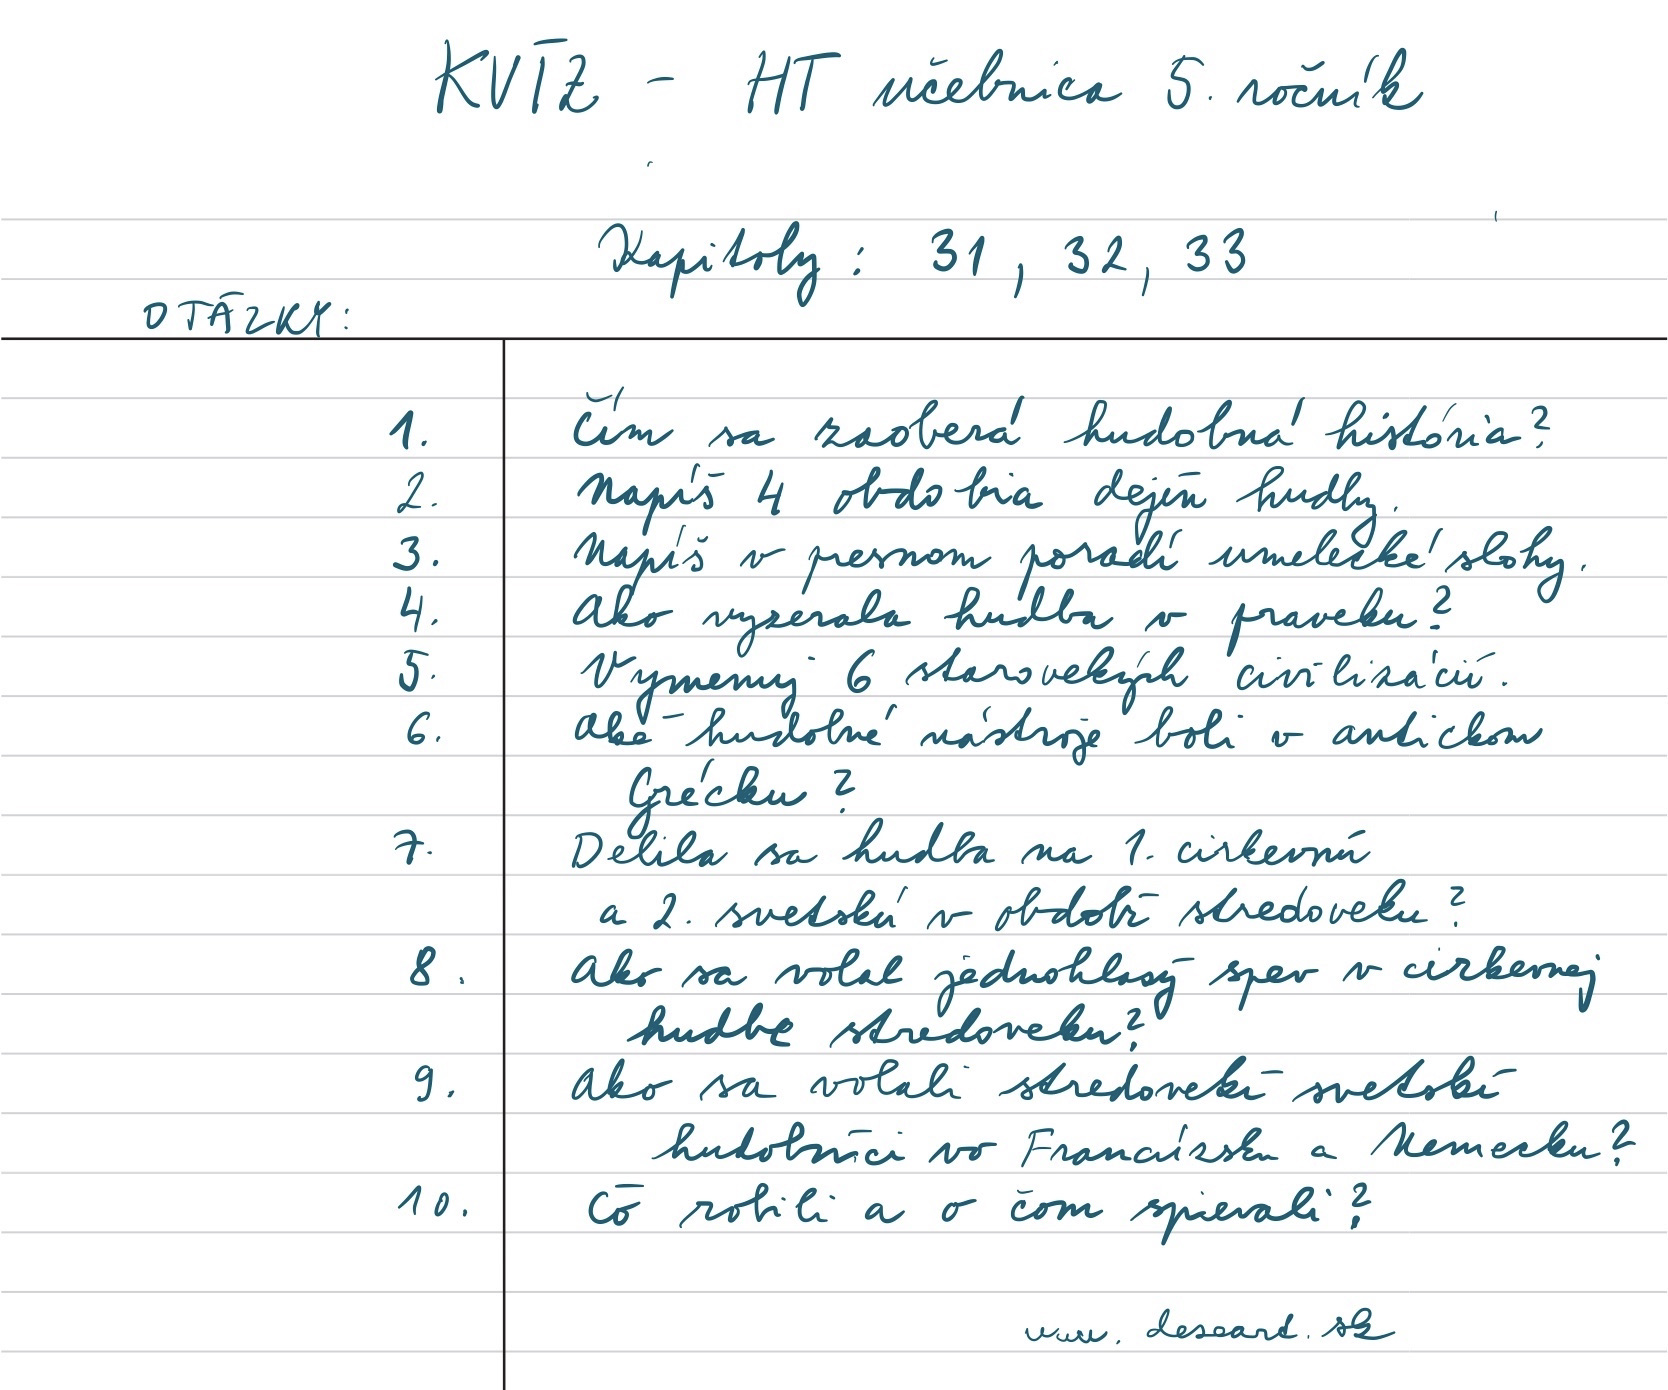 KVÍZ - HT učebnica 5. ročník
Kapitoly: 31, 32, 33
OTÁZKY:
1. Čím sa zaoberá hudobná história?
2. Napíš 4 obdobia dejín hudby.
3. Napíš v presnom poradí umelecké slohy.
4. Ako vyzerala hudba v praveku?
5. Vymenuj 6 starovekých civilizácií.
6. Aké hudobné nástroje boli v antickom
Grécku?
7. Delila sa hudba na 1. cirkevnú
a 2. svetskú v období stredoveku?
8. Ako sa volal jednohlasý spev v cirkevnej
hudbe stredoveku?
9. Ako sa volali stredovekí svetskí
hudobníci vo Francúzsku a Nemecku?
10. Čo robili a o čom spievali?
www.deseart.sk